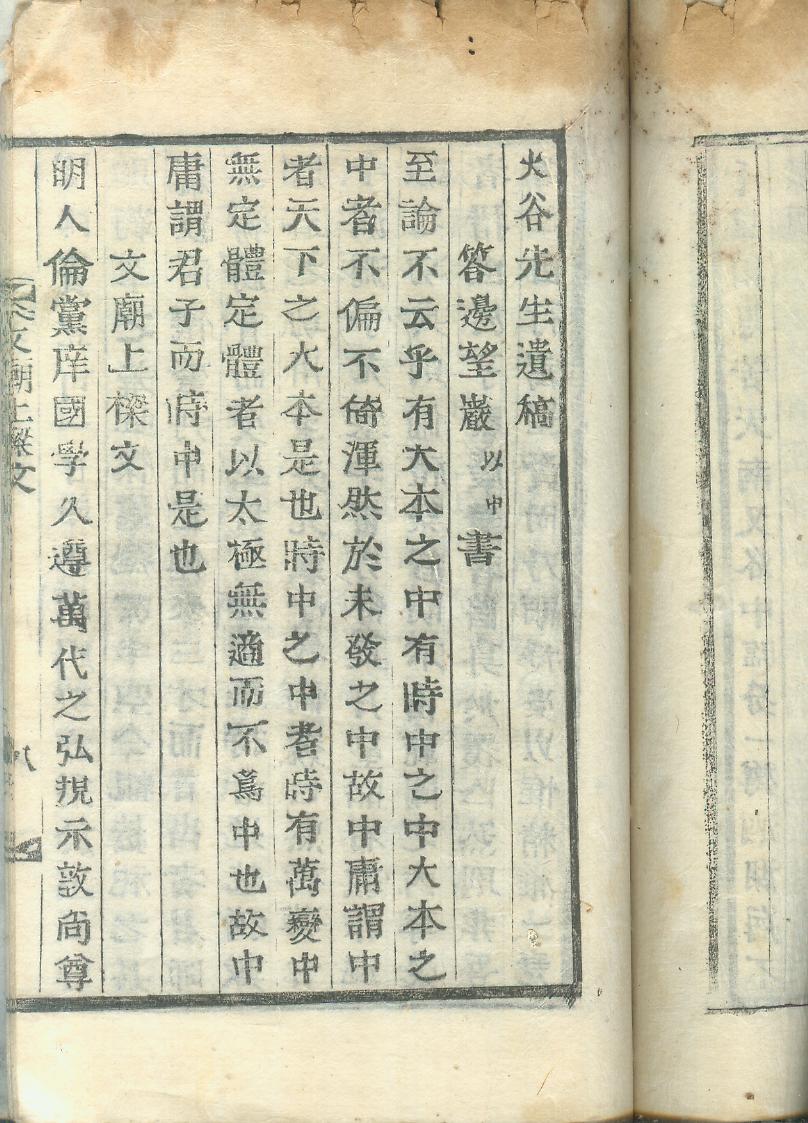 火谷先生遺稿
答邊望巖以中書
至論不云乎有大本之中有時中之中大本之
中者不偏不倚渾然於未發之中故中庸謂中
者天下之大本是也時中之中者時有萬變中
無定體定體者以太極無適而不爲中也故中
庸謂君子而時中是也
文廟上樑文
明人倫黨庠國學久遵萬代之弘規示敦尙尊
文廟上樑文
八